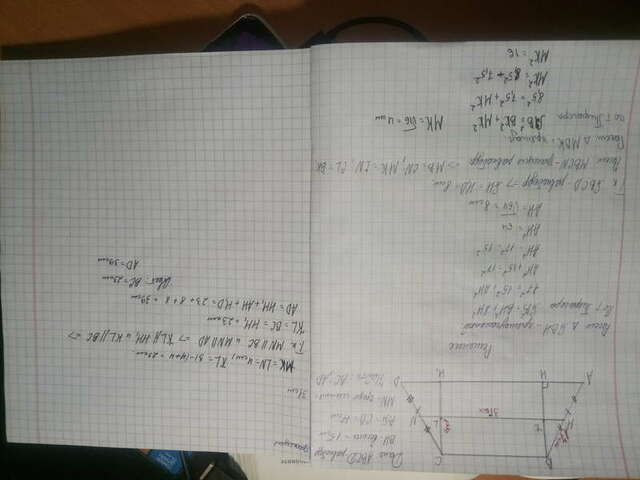 Дано: ABCD равнобедр
трапеция
BH высота = 15см
AB = CD = 17см
MN средн линия = 31см
Найти BC, AD
B
C
M
K
L
N
31см
A
H
H₁
D
Решение
Рассм △ ABH - прямоугольный
По т Пифагора
AB² = BH² + AH²
17² = 15² + AH²
AH² + 15² = 17²
AH² = 17² - 15²
AH² = 64
AH = √64 = 8см
Т.к ABCD равнобедр => AH = H₁D = 8см.
Рассм MBCN - трапеция равнобедр => MB = CN, MK = LN, CL = BK
Рассм △ MBK: прямоуг.
По т Пифагора
MB² = BK² + MK²
8,5² = 7,5² + MK²
MK² = 8,5² - 7,5²
MK² = 16
MK = √16 = 4см
MK = LN = 4см, KL = 31-(4+4) = 23см
Т.к MN || BC и MN || AD => KL || HH₁ и KL || BC =>
KL = BC = HH₁ = 23см
AD = HH₁ + AH + H₁D = 23 + 8 + 8 = 39см
Ответ: BC = 23см
AD = 39см